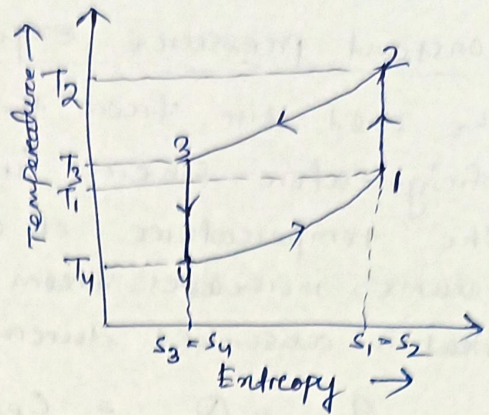 Temperature →
T2
T3
T1
T4
2
3
1
4
S3 = S4
S1 = S2
Entropy →